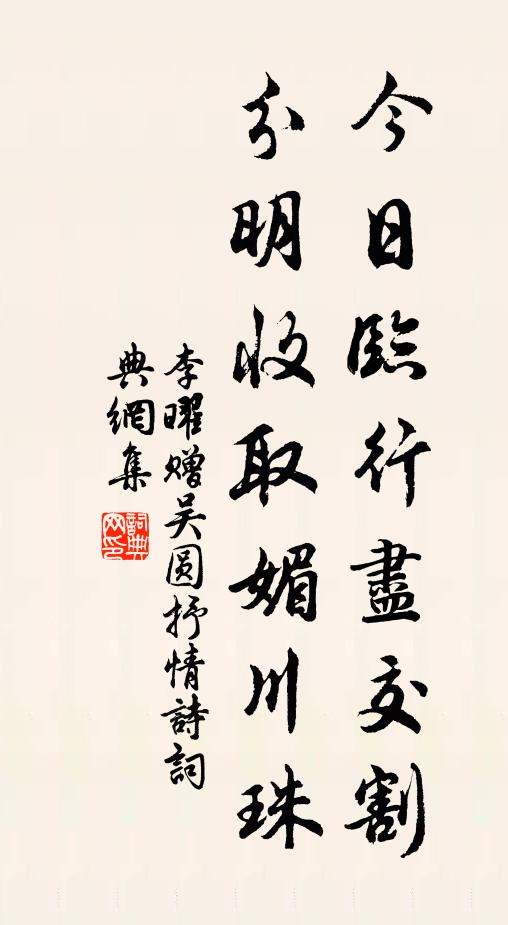 今日臨行盡交割
分明收取媚川珠
李曜贈吴圆抒情詩詞
典網集
詞典網印